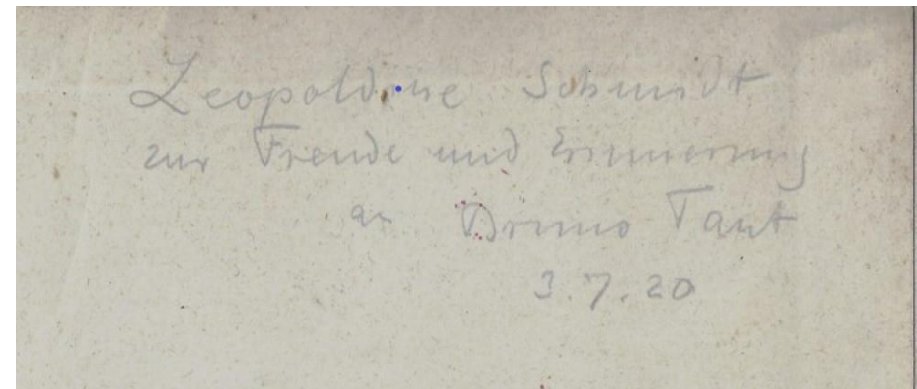 Leopoldine Schmidt
zur Freude und Erinnerung
an Bruno Taut
3.7.20